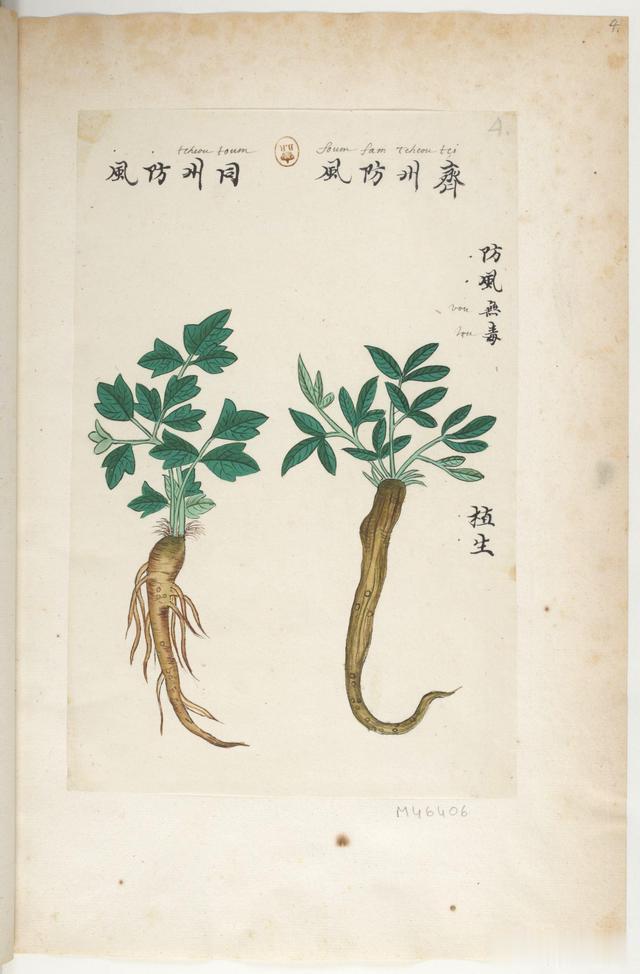 4.
4.
soum fam tcheou tçi
齊州防風
tcheou toum
同州防風
防風無毒
vou
tou
植生
B.R
M46406